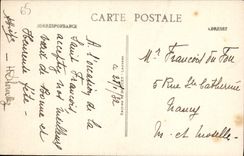 CARTE POSTALE
CORRESPONDANCE
ADRESSE
A l'occasion de la
Saint François
acceptez nos meilleurs
vœux de bonne et
Heureuse fête
Mr François
5 Rue Ste Catherine
Nancy
M. et Moselle